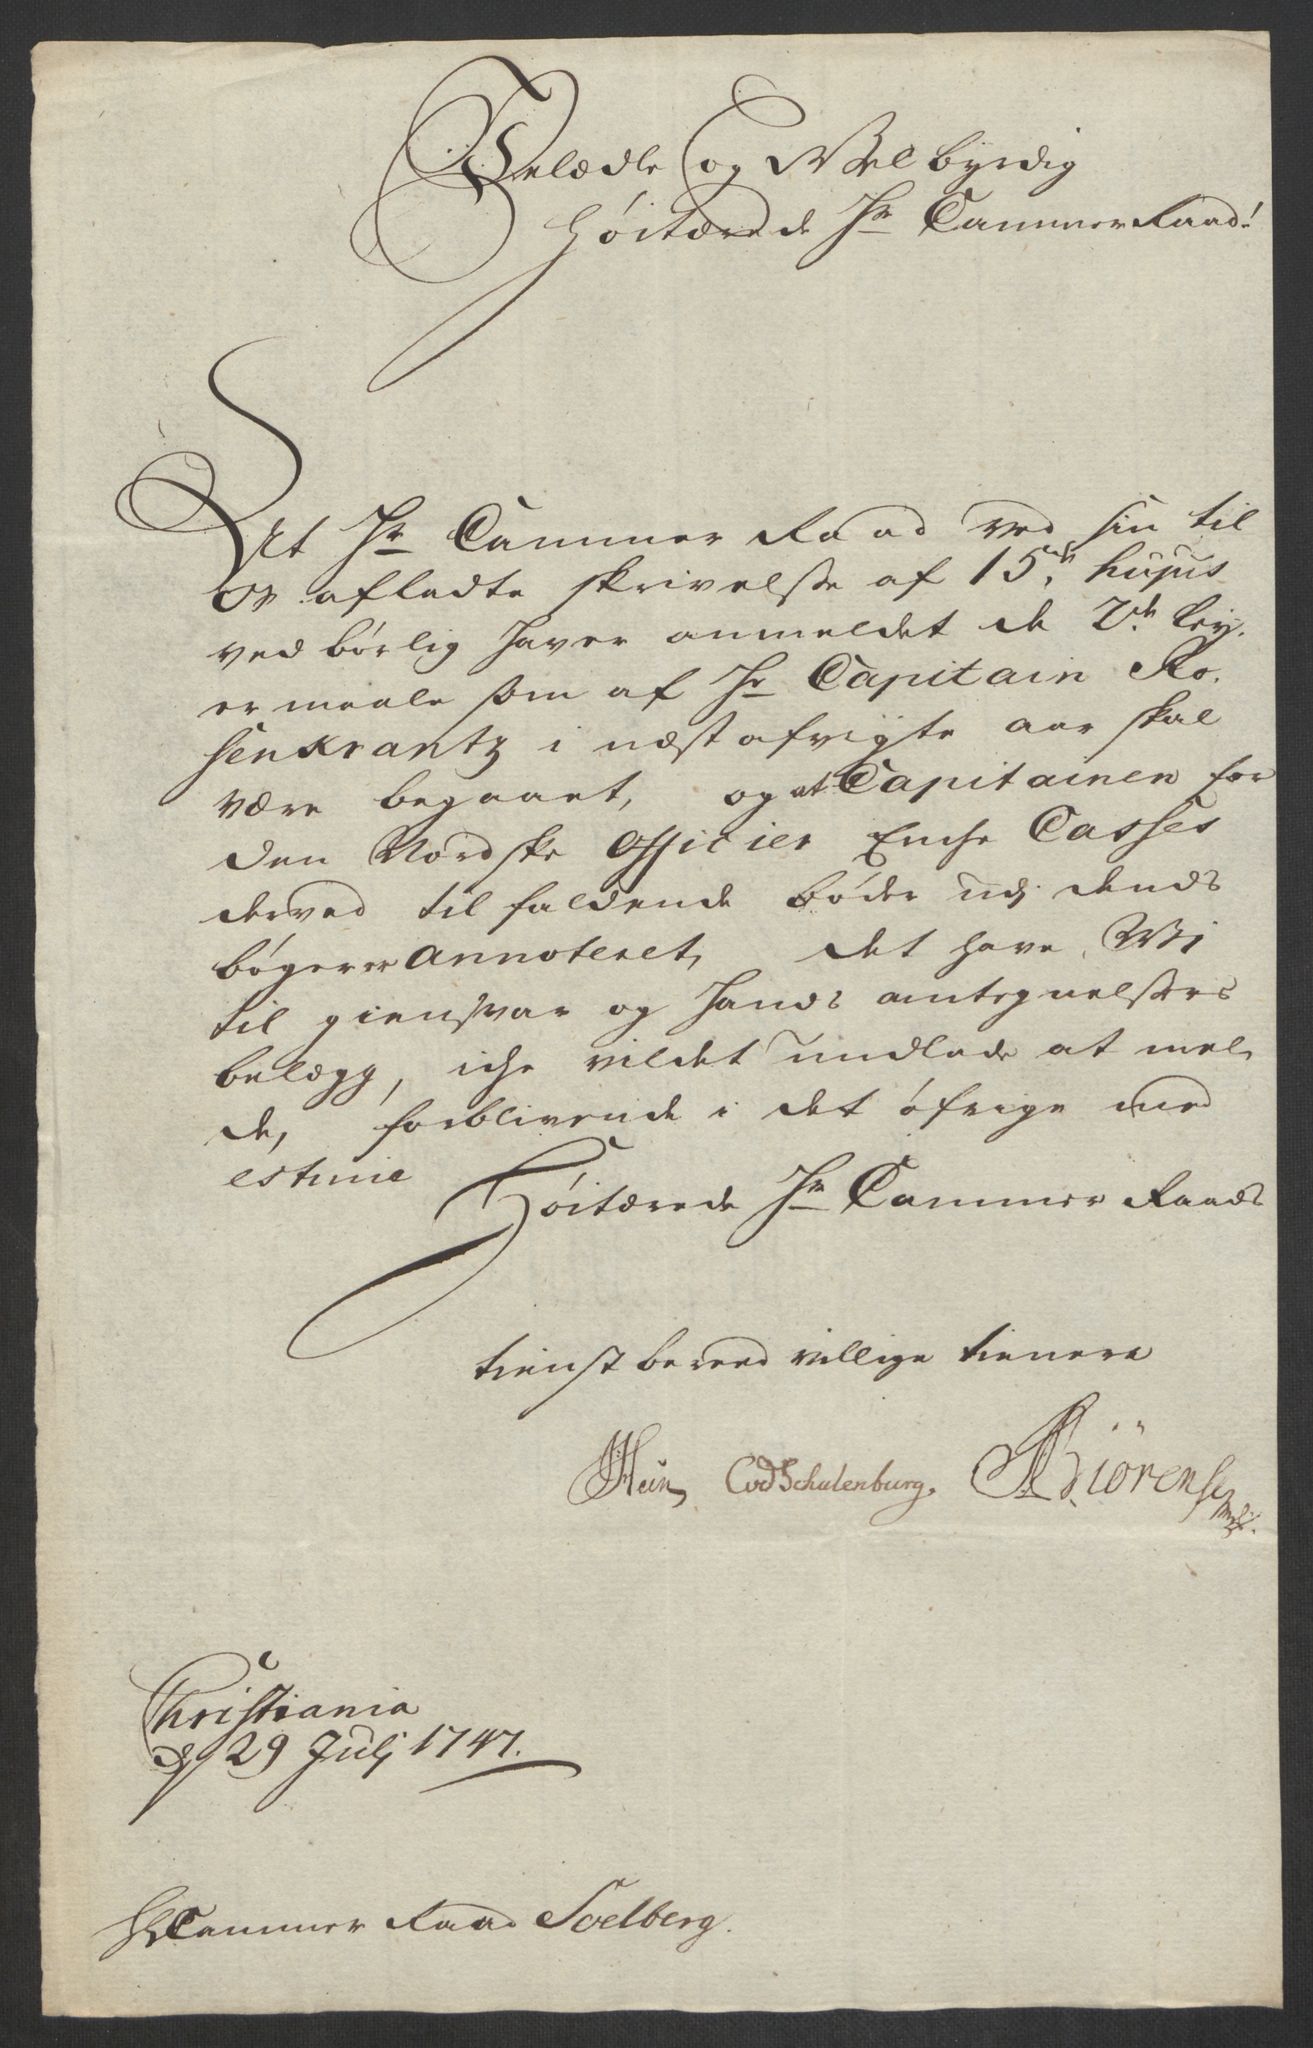 Velædle og Wel byrdig
Høitærede Hr Cammer Raad!
At Hr Cammer Raad ved sin til
os afladte skrivelse af 15de hujus
ved børlig haver anmeldet de 2de Ley,
er maale som af Hr Capitain Ro,
senkrantz i næst afvigte aar skal
være begaaet, og at Capitainen for
den Nordske Officier Enche Casses
derved til faldende bøder udj dends
bøger er Annoteret, det have Wi
til giensvar og hands antegnelsers
belægg, iche vildet undlade at mel,
de, forblivende i det øfrige med
estime
Høitærede Hr Cammer Raads
tienst bereed villige tienere
Hein CvdSchulenburg. Biörensen
Christiania
d 29 Julj 1747.
Hr Cammer Raad Soelberg.